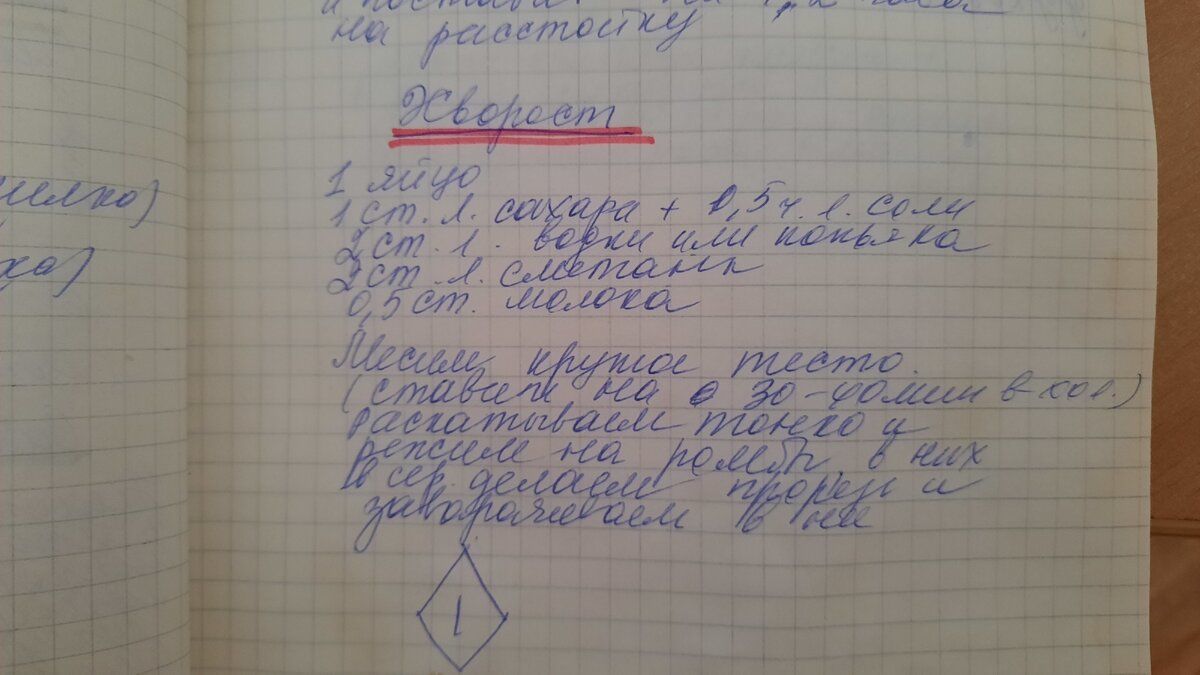 на расстойку
Хворост
1 яйцо
1 ст. л. сахара + 0,5 ч. л. соли
2 ст. л. водки или коньяка
2 ст. л. сметаны
0,5 ст. молока
Месим крутое тесто.
(ставим на 30-40 мин в хол.)
раскатываем тонко и
режим на ромбы, в них
в сер. делаем прорезь и
заворачиваем в нее
илко)
ха)